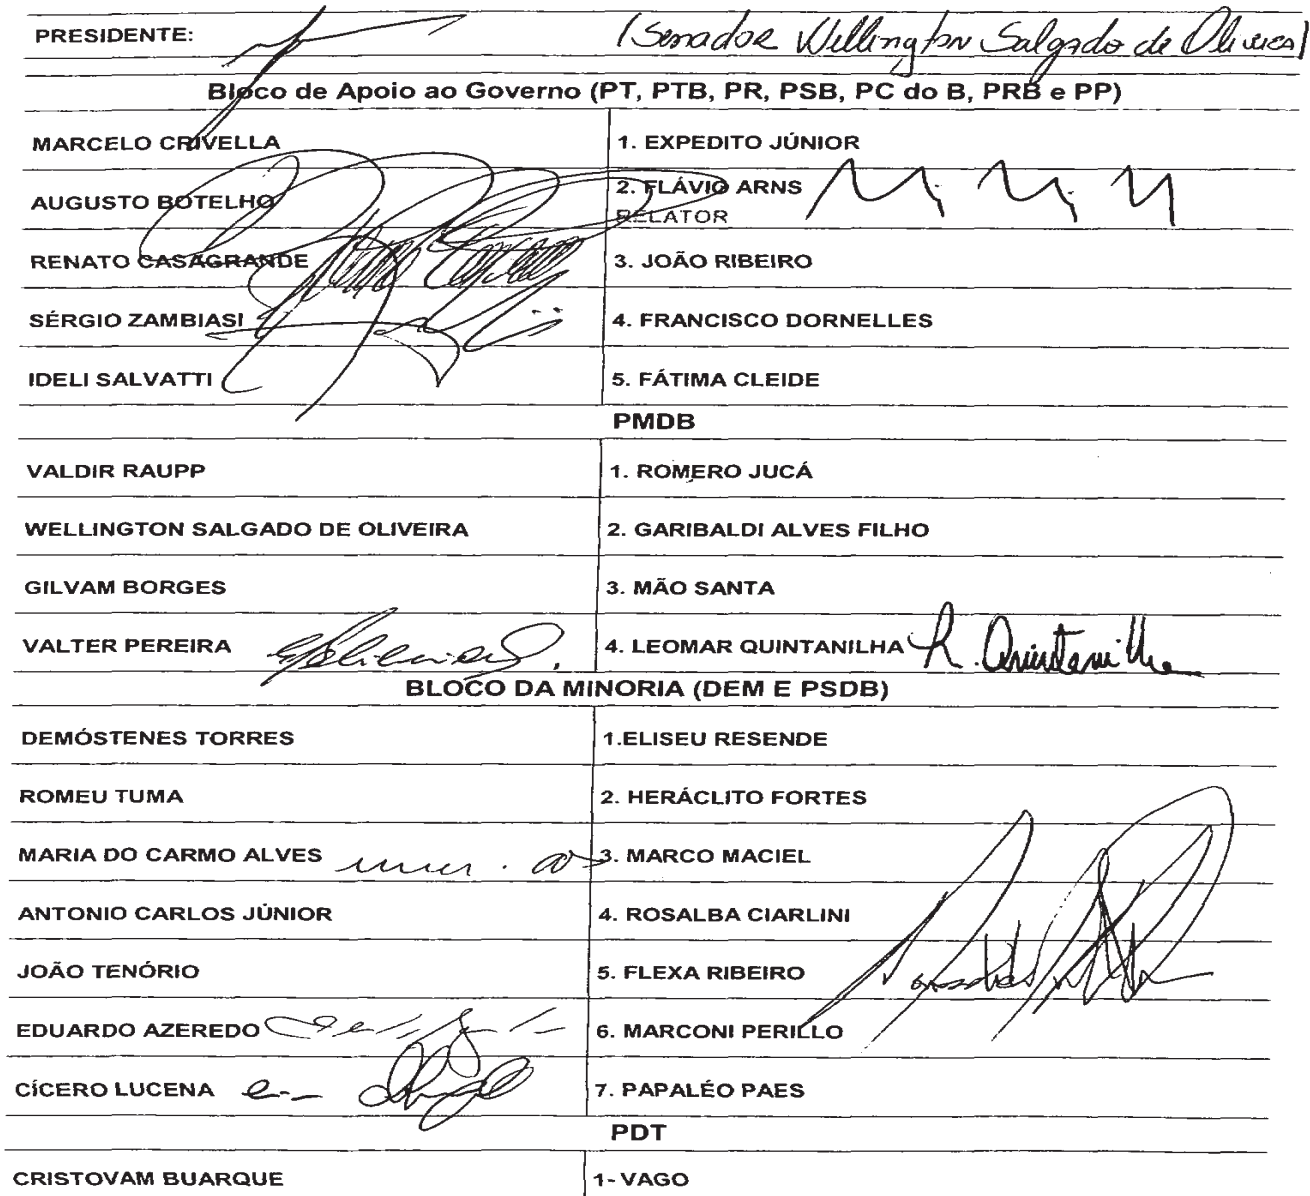 PRESIDENTE: (Senador Wellington Salgado de Oliveira)
Bloco de Apoio ao Governo (PT, PTB, PR, PSB, PC do B, PRB e PP)
MARCELO CRIVELLA 1. EXPEDITO JÚNIOR
AUGUSTO BOTELHO 2. FLÁVIO ARNS
RELATOR
RENATO CASAGRANDE 3. JOÃO RIBEIRO
SÉRGIO ZAMBIASI 4. FRANCISCO DORNELLES
IDELI SALVATTI 5. FÁTIMA CLEIDE
PMDB
VALDIR RAUPP 1. ROMERO JUCÁ
WELLINGTON SALGADO DE OLIVEIRA 2. GARIBALDI ALVES FILHO
GILVAM BORGES 3. MÃO SANTA
VALTER PEREIRA 4. LEOMAR QUINTANILHA L. Quintanilha
BLOCO DA MINORIA (DEM E PSDB)
DEMÓSTENES TORRES 1.ELISEU RESENDE
ROMEU TUMA 2. HERÁCLITO FORTES
MARIA DO CARMO ALVES 3. MARCO MACIEL
ANTONIO CARLOS JÚNIOR 4. ROSALBA CIARLINI
JOÃO TENÓRIO 5. FLEXA RIBEIRO
EDUARDO AZEREDO 6. MARCONI PERILLO
CÍCERO LUCENA 7. PAPALÉO PAES
PDT
CRISTOVAM BUARQUE 1- VAGO